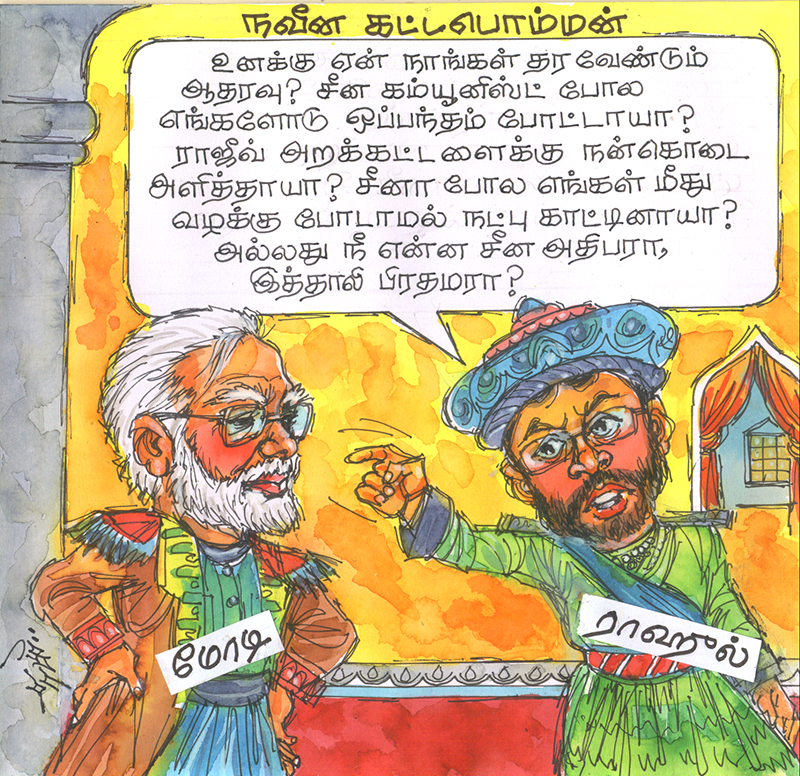 நவீன கட்டபொம்மன்
உனக்கு ஏன் நாங்கள் தர வேண்டும்
ஆதரவு? சீன கம்யூனிஸ்ட் போல
எங்களோடு ஒப்பந்தம் போட்டாயா?
ராஜீவ் அறக்கட்டளைக்கு நன்கொடை
அளித்தாயா? சீனா போல எங்கள் மீது
வழக்கு போடாமல் நட்பு காட்டினாயா?
அல்லது நீ என்ன சீன அதிபரா,
இத்தாலி பிரதமரா?
மோடி
ராஹுல்